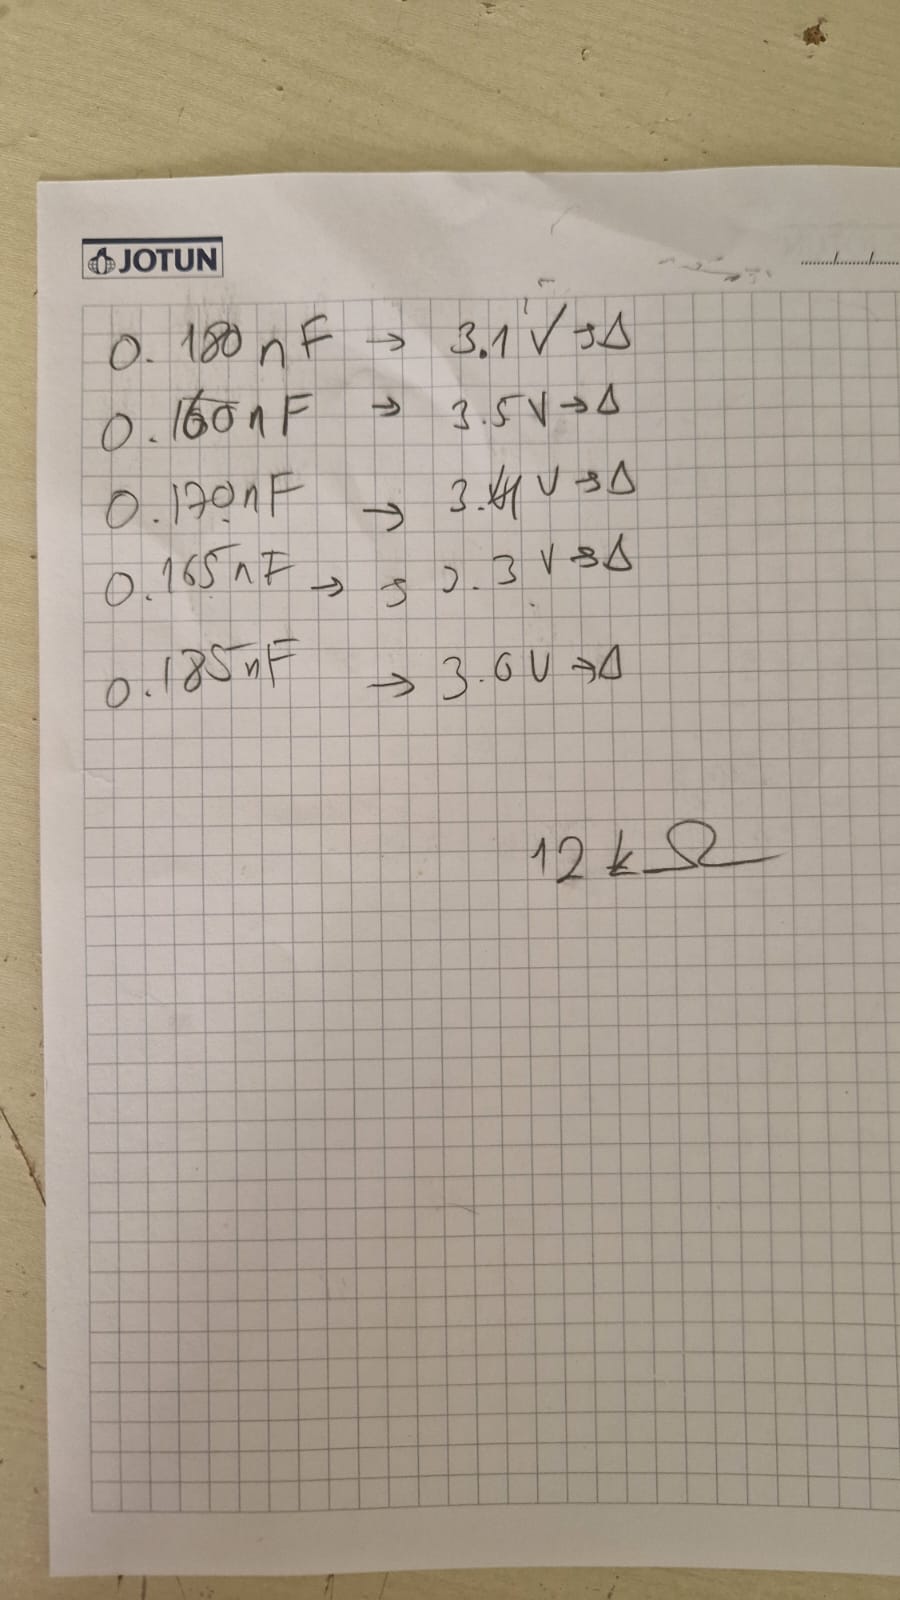 JOTUN
0.180nF → 3.1V → Δ
0.160nF → 3.5V → Δ
0.170nF → 3.4V → Δ
0.165nF → 3.3V → Δ
0.185nF → 3.6V → Δ
12kΩ